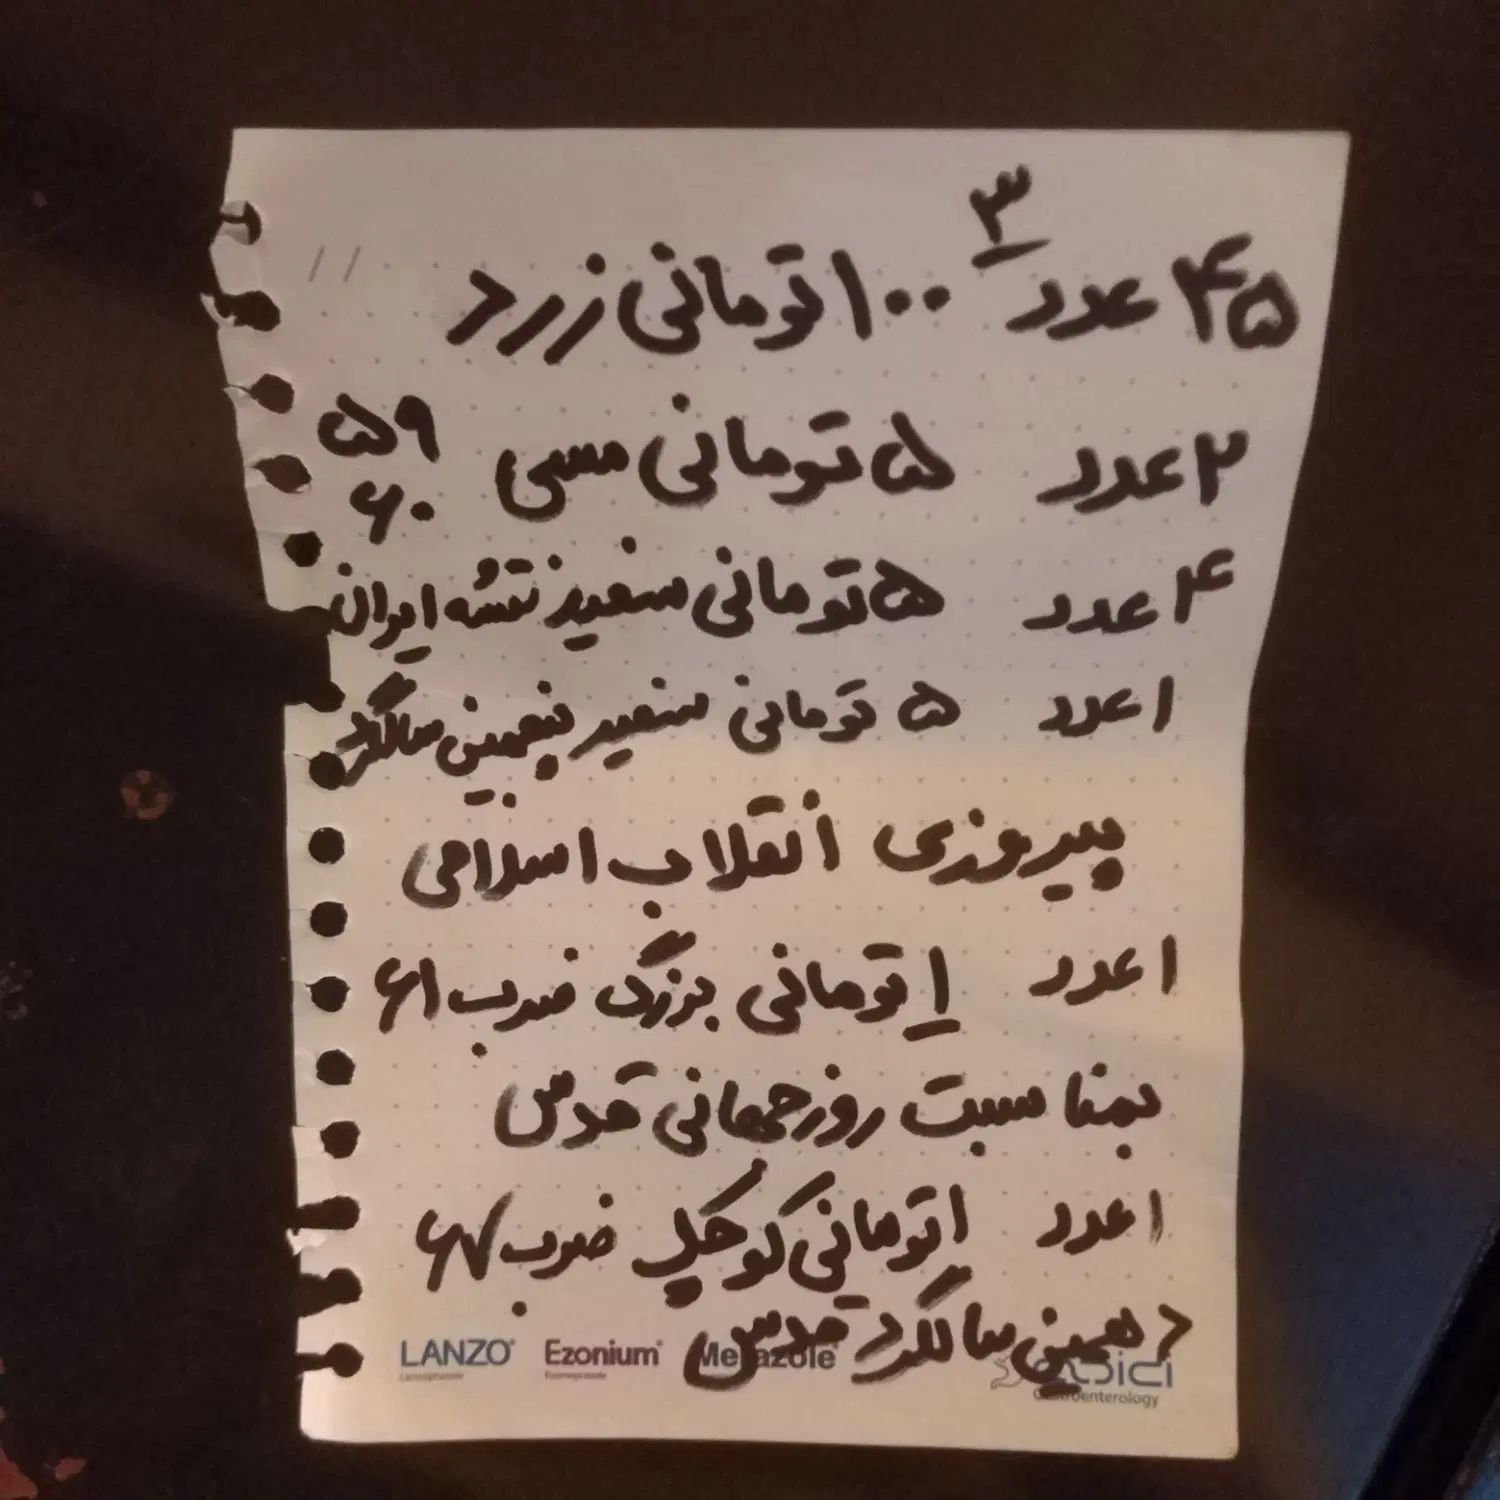 ۳
۴۵ عدد ۱۰۰ تومانی زرد
۲ عدد ۵ تومانی مسی ۵۹
۶۰
۴ عدد ۵ تومانی سفید نقشه ایران
۱ عدد ۵ تومانی سفید پنجمین سالگرد
پیروزی انقلاب اسلامی
۱ عدد ۱ تومانی بزرگ ضرب ۶۱
بمناسبت روز جهانی قدس
۱ عدد ۱ تومانی کوچک ضرب ۶۷
دهمین سالگرد قدس
LANZO® Ezonium® abidi
Lansoprazole Esomeprazole Gastroenterology